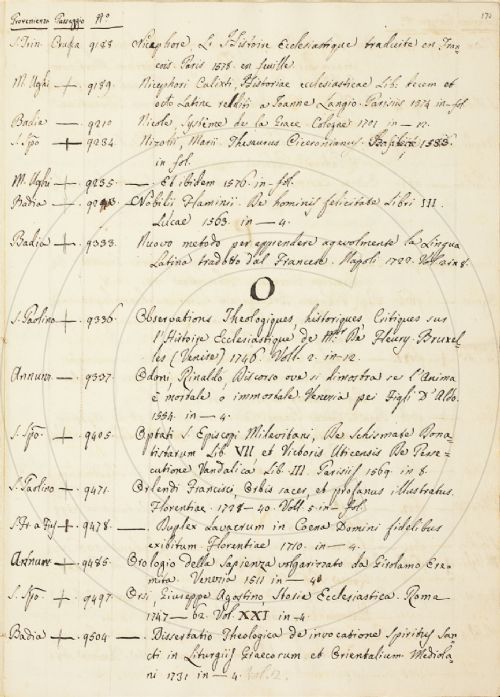 Provenienza Passaggio N.o
170
S. Trin. Crusca 9188 Nicephore, L'Histoire Ecclesiastique traduite en Fran-
cois. Paris 1578. en feuille
M. Ughi + 9189. Nicephori Calixti, Historiae ecclesiasticae Lib. decem et
octo Latine redditi a Joanne Langio. Parisiis 1574 in-fol.
Badia — 9210 Nicole, Système de la Grace. Cologne 1701 in — 12.
S. Spo + 9234. Nizolii, Marii. Thesaurus Ciceronianus. 1583.
in fol.
M. Ughi + 9235. —. Et ibidem 1576. in-fol.
Badia — Nobilii Flaminii. De hominis felicitate Libri III.
Lucae 1563. in — 4.
Badia + 9333. Nuovo metodo per apprendere agevolmente la Lingua
Latina tradotto dal Francese. Napoli 1722. Vol. 2 in 8.
O
S. Paolino + 9336. Observations Theologiques, historiques, Critiques sur
l'Histoire Ecclesiastique de Mgr. De Fleury. Bruxel-
les (Venise) 1746. Voll. 2. in-12.
Annunz. — 9337. Odoni, Rinaldo, Discorso ove si dimostra se l'Anima
è mortale o immortale. Venezia pei Figli d'Aldo.
1554. in — 4.
S. Spo. + 9405. Optati S. Episcopi Milevitani, De Schismate Dona-
tistarum Lib. VII et Victoris Uticensis De Perse-
cutione Vandalica Lib. III. Parisiis 1569. in 8.
S. Paolino + 9471. Orlendi Francisci, Orbis sacer, et profanus illustratus.
Florentiae. 1728-40. Voll. 5. in — fol.
+ 9478. —. Duplex Lavacrum in Coena Domini fidelibus
exibitum Florentiae 1710. in — 4.
Annunz. + 9485. Orologio della Sapienza volgarizzato da Girolamo Ere-
mita. Venezia 1511 in — 4o
S. Spo. + 9497. Orsi, Giuseppe Agostino, Storia Ecclesiastica. Roma
1747-62. Vol. XXI in-4.
Badia + 9504. —. Dissertatio Theologica de invocatione Spiritus San-
cti in Liturgiis Graecorum et Orientalium. Mediola-
ni 1731 in — 4. Vol. 2.